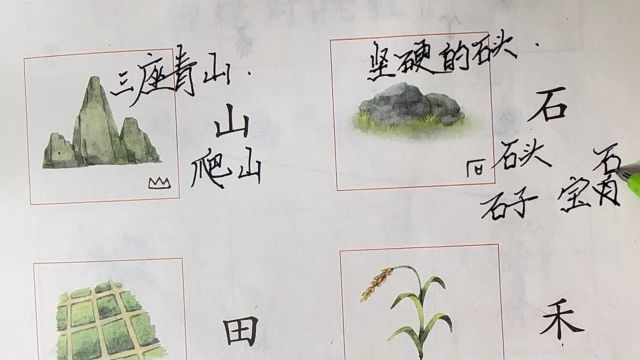 三座青山.
山
爬山
坚硬的石头.
石
石头
石子 宝石
田
禾